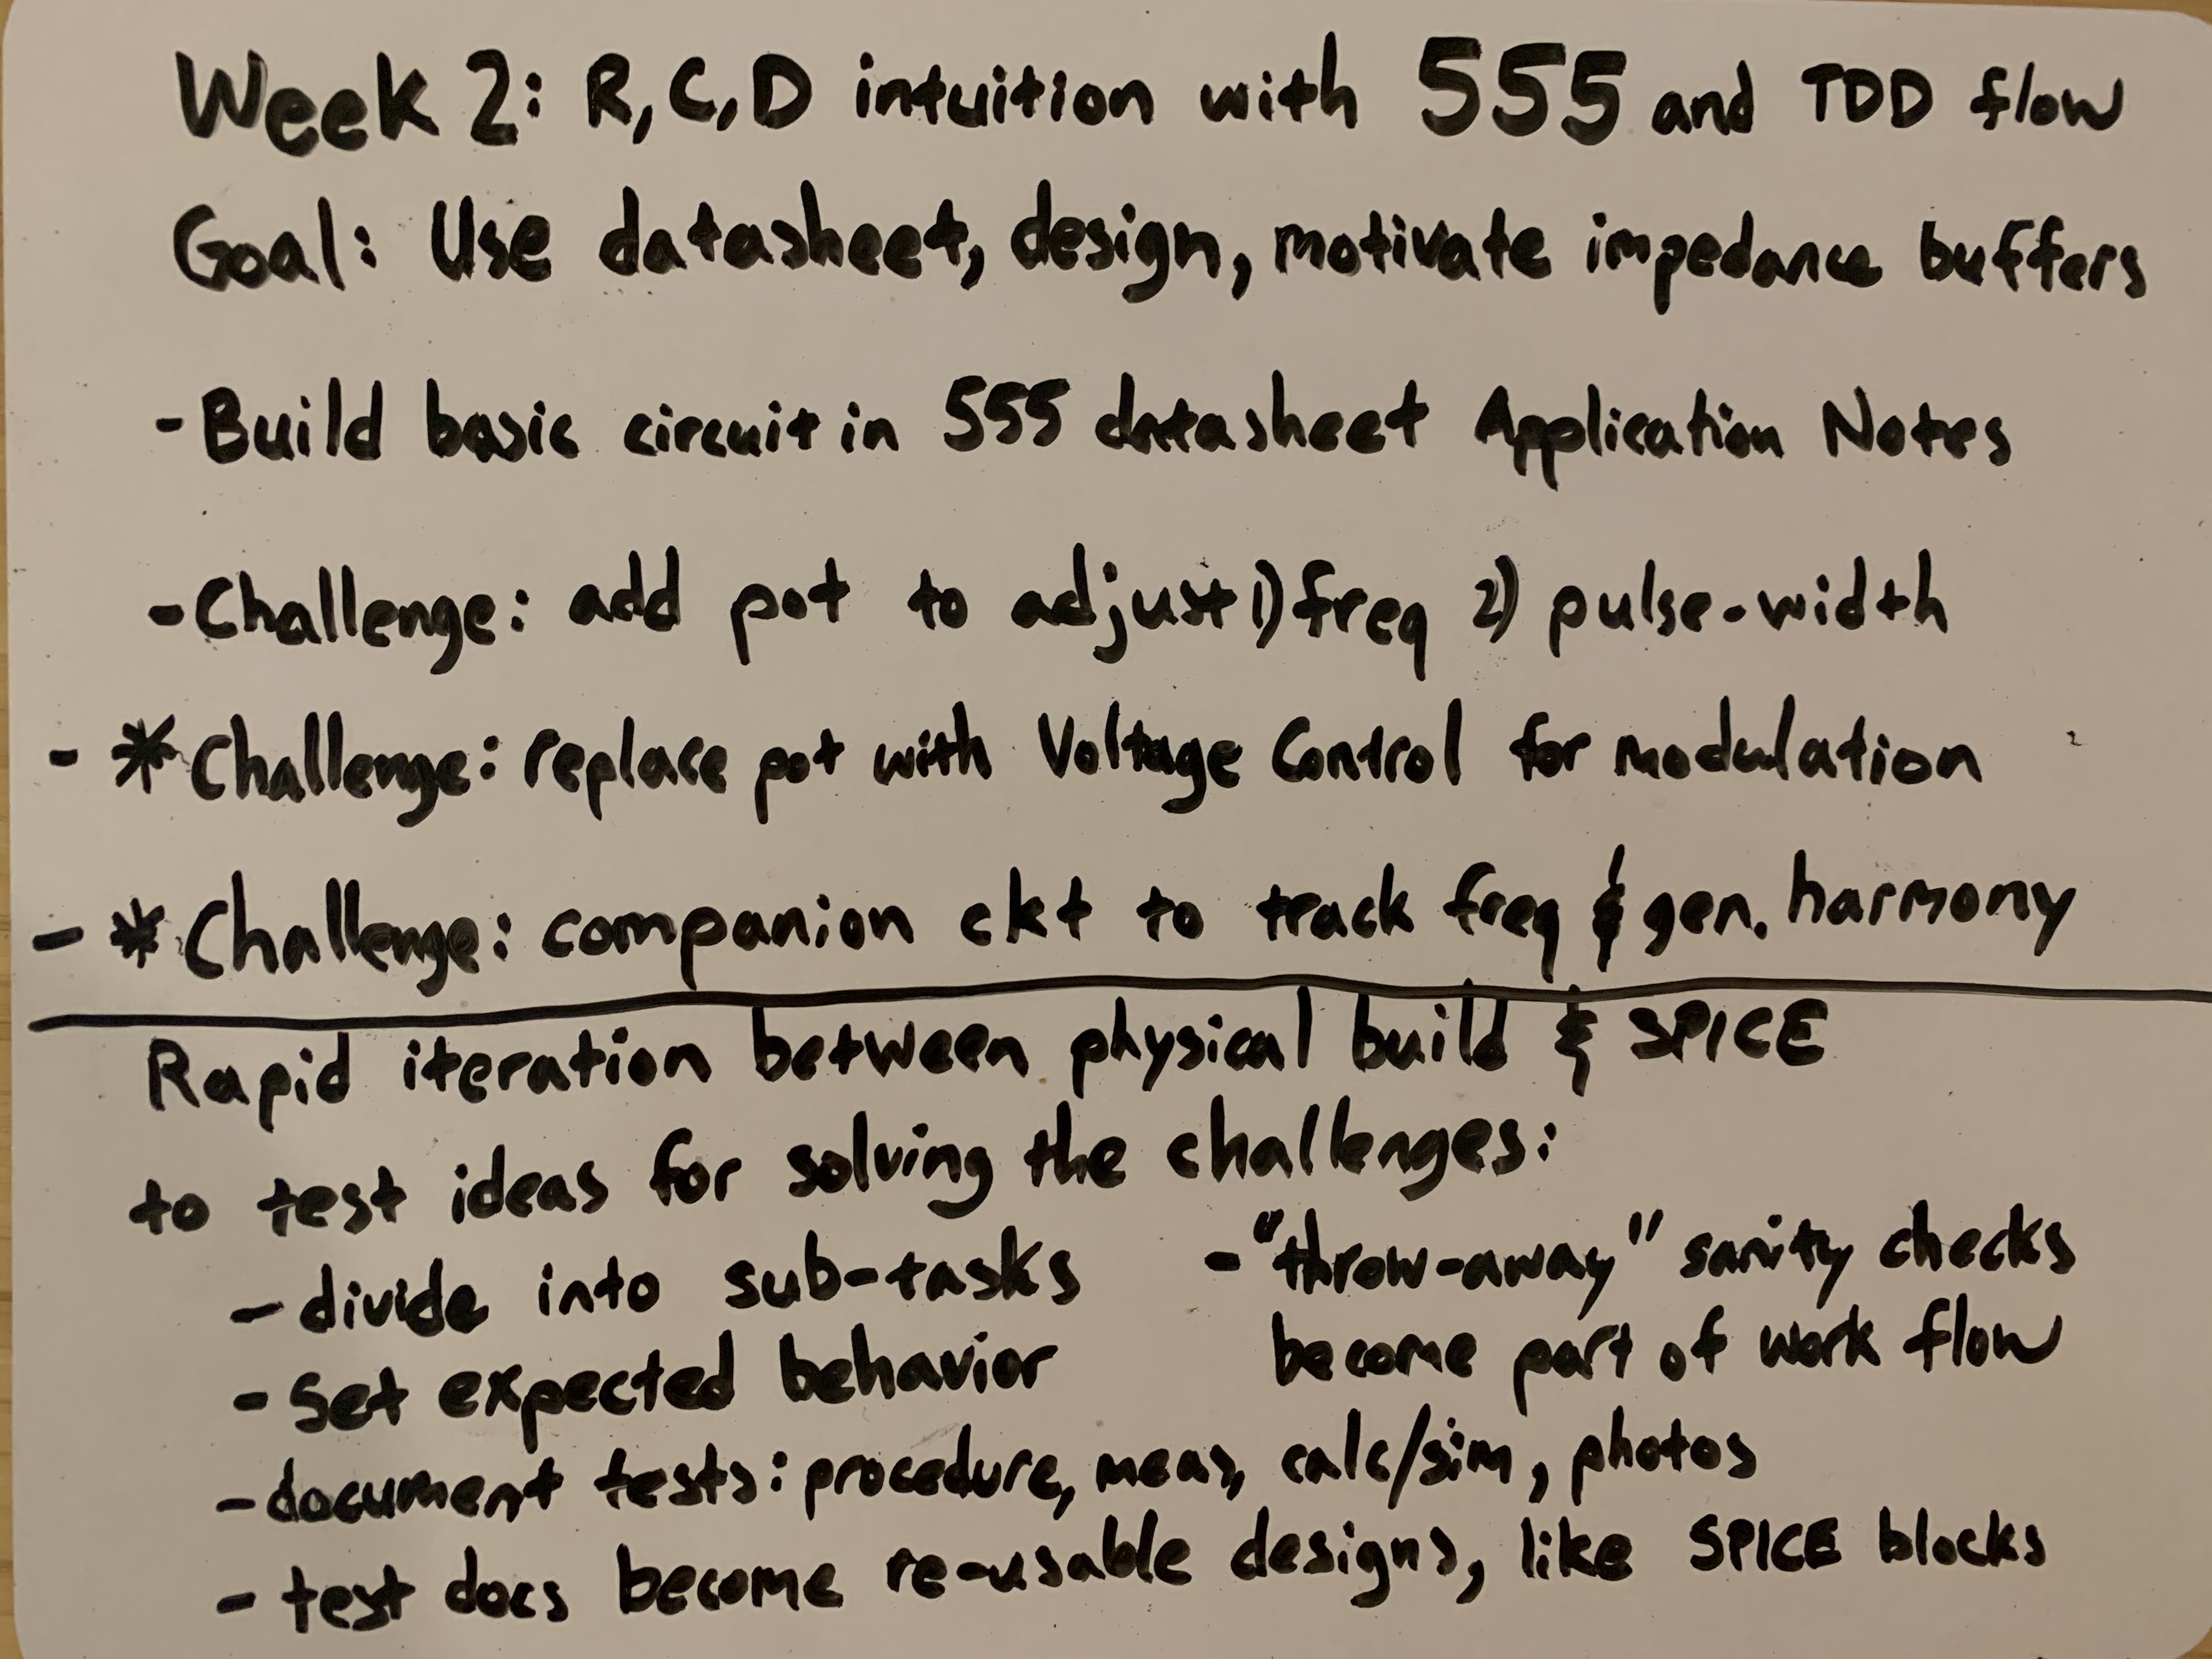 Week 2: R,C,D intuition with 555 and TDD flow
Goal: Use datasheet, design, motivate impedance buffers
- Build basic circuit in 555 datasheet Application Notes
- Challenge: add pot to adjust 1) freq 2) pulse-width
- * Challenge: replace pot with Voltage Control for modulation
- * Challenge: companion ckt to track freq & gen. harmony
Rapid iteration between physical build & SPICE
to test ideas for solving the challenges:
- divide into sub-tasks
- set expected behavior
- "throw-away" sanity checks
become part of work flow
- document tests: procedure, meas, calc/sim, photos
- test docs become re-usable designs, like SPICE blocks